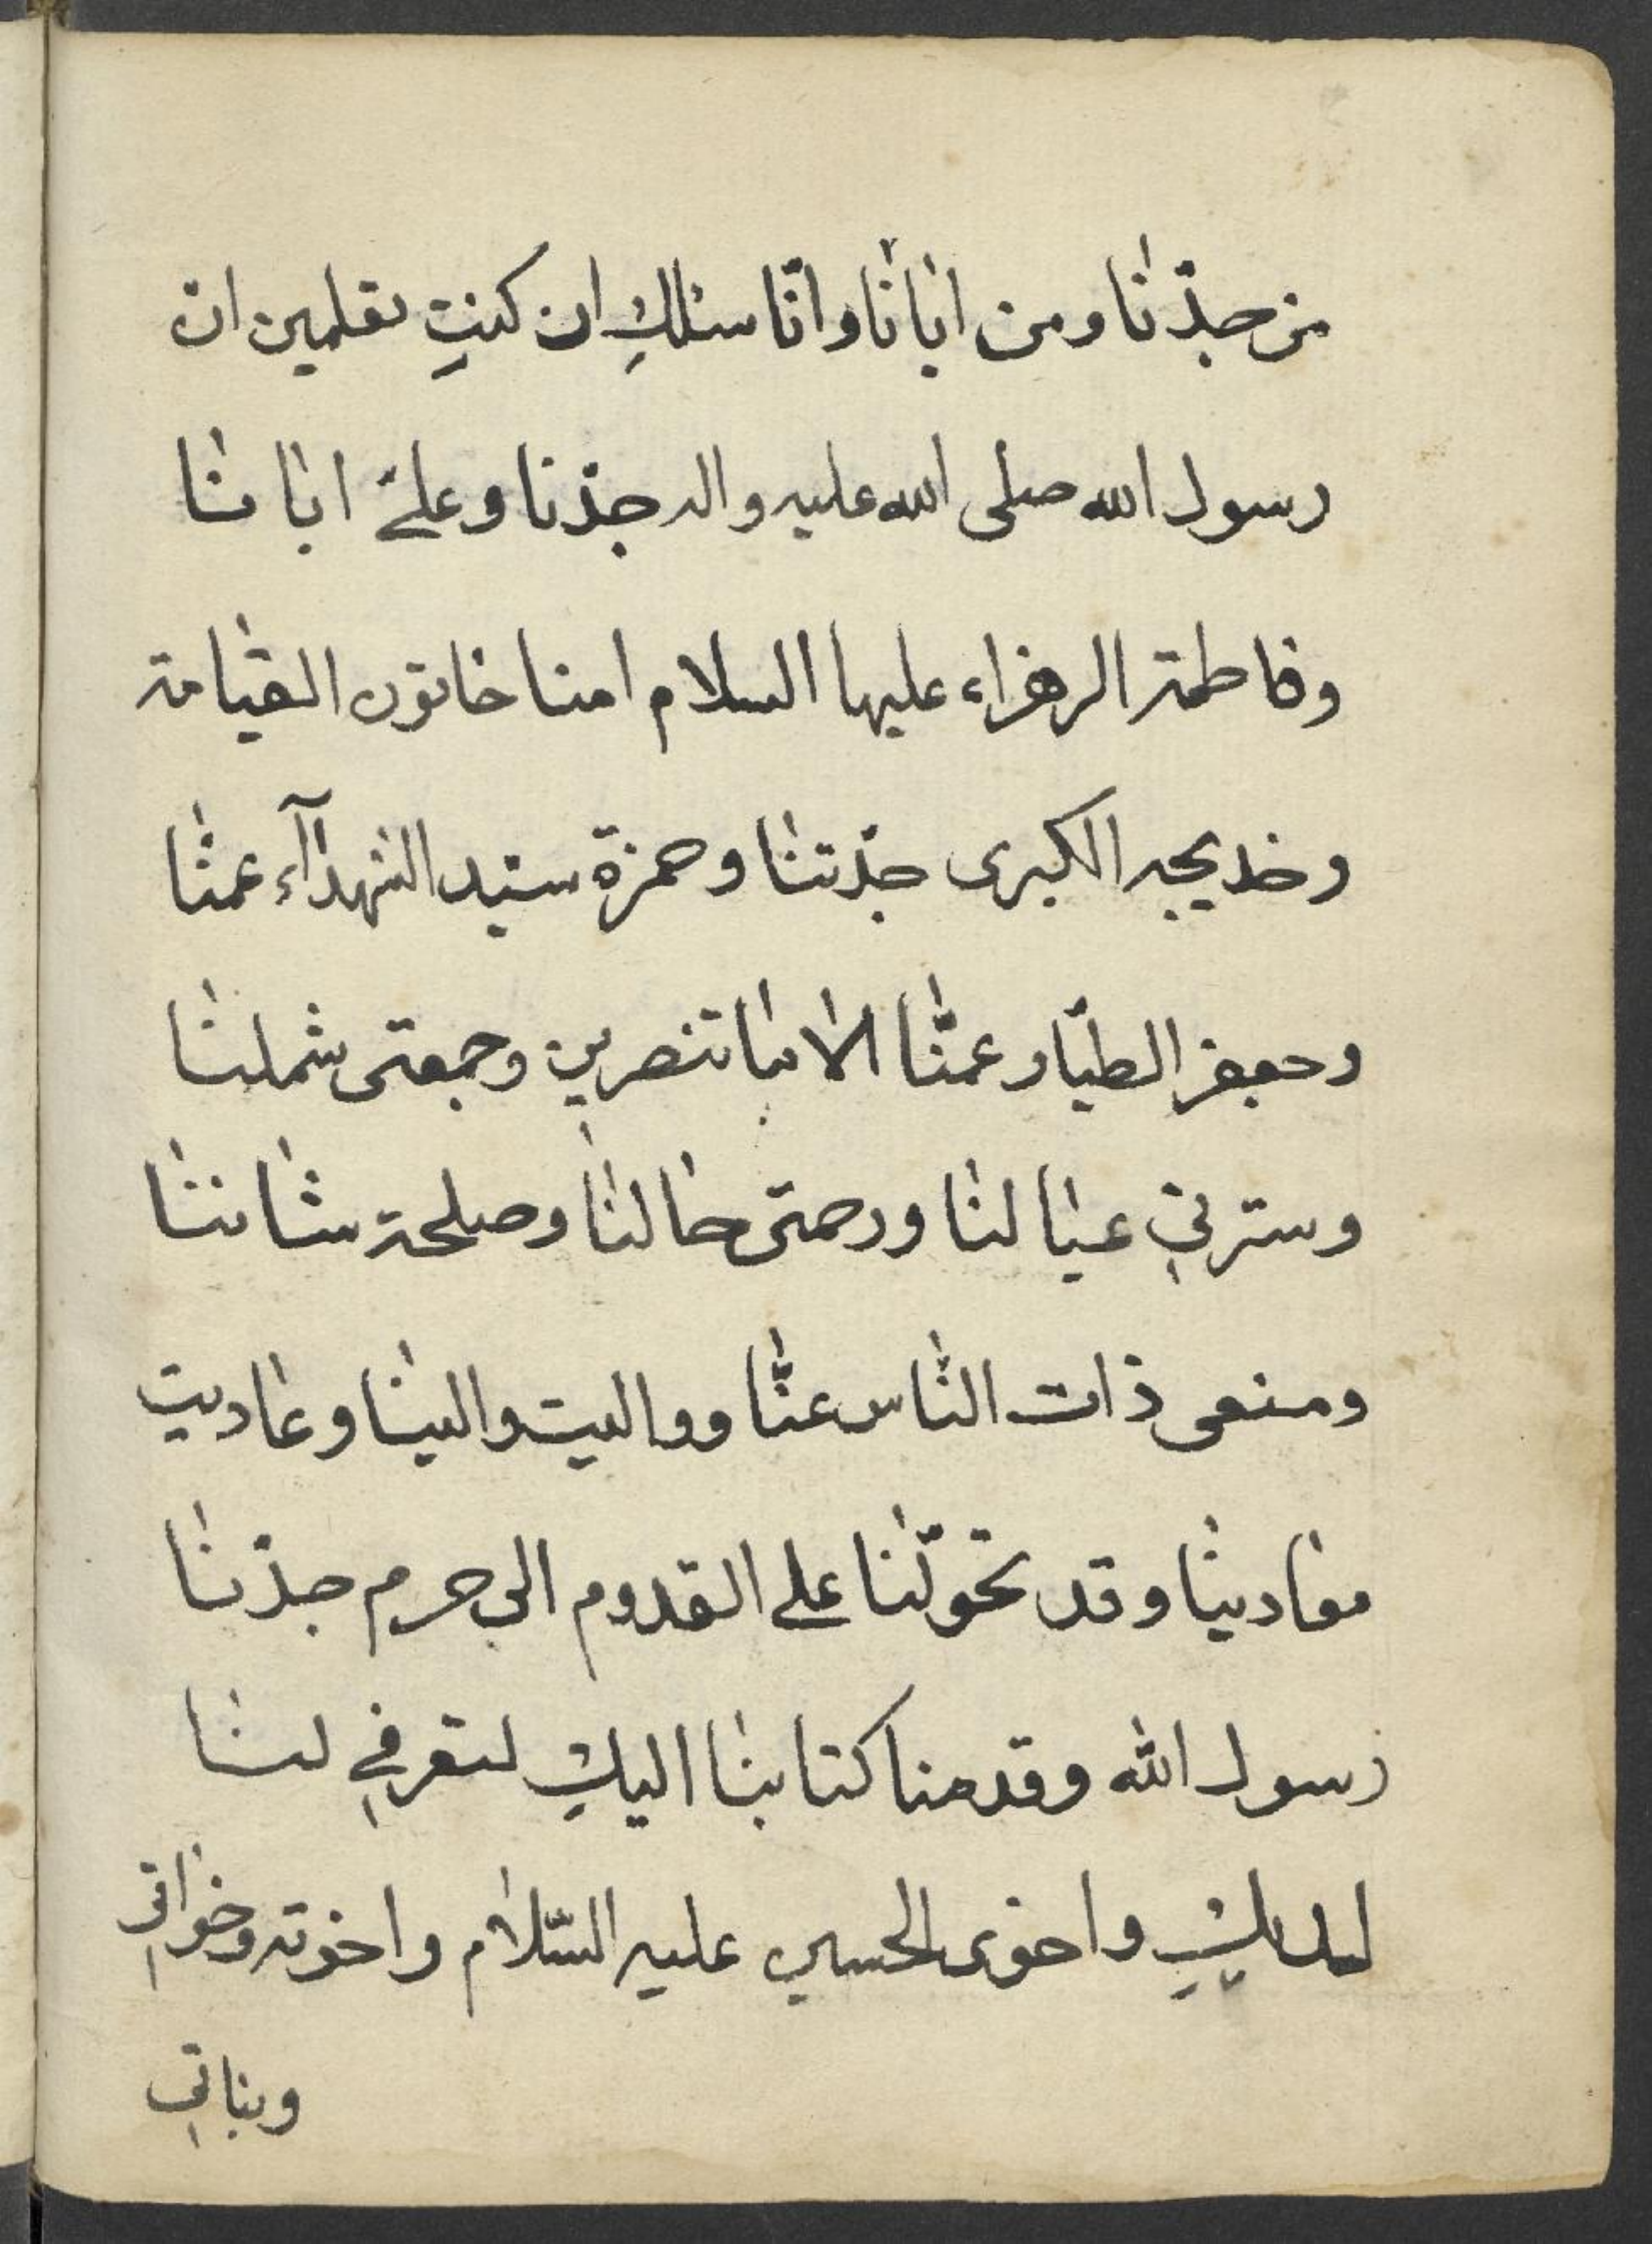 من جدّنا ومن ابانا وانا سئلكِ ان كنتِ تعلمين انّ
رسول الله صلى الله عليه واله جدّنا وعلىّ ابانا
وفاطمة الزهراء عليها السلام امنا خاتون القيامة
وخديجه الكبرى جدّتنا وحمزة سيد الشهدآء عمنا
وجعفر الطيّار عمّنا الاما تنصرين وجمعتى شملنا
وسترتي عيالنا ورحمتى حالنا وصلحة شاننا
ومنعى ذات النّاس عنّا وواليت والينا وعاديت
معادينا وقد تحوّلنا على القدوم الى حرم جدّنا
رسول الله وقدمنا كتابنا اليكِ لتعرفي لنا
واخوى الحسين عليه السّلام واخوته وخواتي
وبناتي